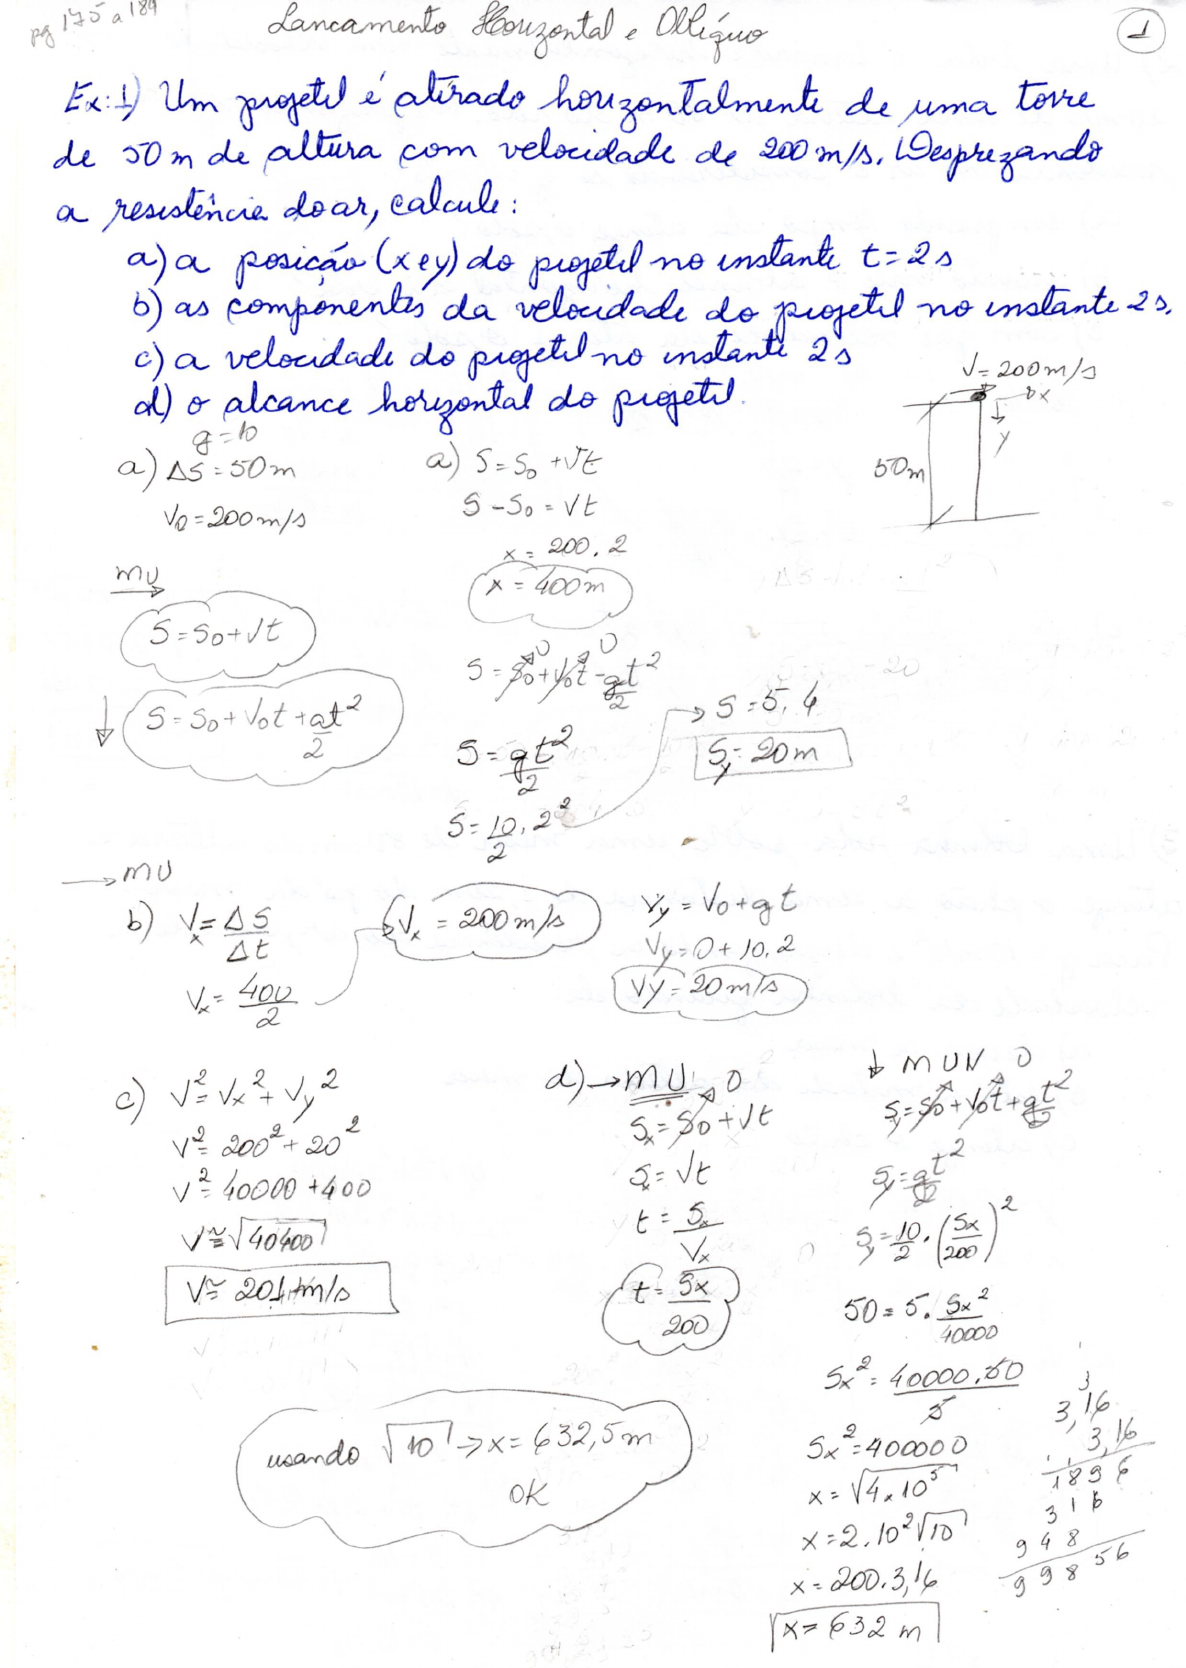 pg 175 a 189
Lancamento Horizontal e Oblíquo
1
Ex:1) Um projetil é atirado horizontalmente de uma torre
de 50m de altura com velocidade de 200 m/s. Desprezando
a resistência do ar, calcule:
a) a posição (x e y) do projetil no instante t = 2 s
b) as componentes da velocidade do projetil no instante 2 s.
c) a velocidade do projetil no instante 2 s
d) o alcance horizontal do projetil.
V = 200 m/s
x
y
50m
g = 10
a) ΔS = 50m
V0 = 200 m/s
MU
S = S0 + Vt
S = S0 + V0t + at²/2
a) S = S0 + Vt
S - S0 = Vt
x = 200 . 2
x = 400m
S = S0 + V0t - gt²/2
0 0
S = gt²/2
S = 10/2 . 2²
S = 5 . 4
Sy = 20m
MU
b) Vx = ΔS/Δt
Vx = 400/2
Vx = 200 m/s
Vy = V0 + gt
Vy = 0 + 10.2
Vy = 20 m/s
c) V² = Vx² + Vy²
V² = 200² + 20²
V² = 40000 + 400
V ≅ √40400
V ≅ 201 m/s
d) → MU 0
Sx = S0 + Vt
Sx = Vt
t = Sx/Vx
t = Sx/200
↓ MUV 0
Sy = S0 + V0t + gt²/2
Sy = gt²/2
Sy = 10/2 . (Sx/200)²
50 = 5 . Sx²/40000
Sx² = 40000 . 50/5
Sx² = 400000
x = √4 x 10⁵
x = 2 . 10² √10
x = 200 . 3,16
x = 632 m
3,16
3,16
1896
316
948
99856
usando √10 → x = 632,5 m
OK